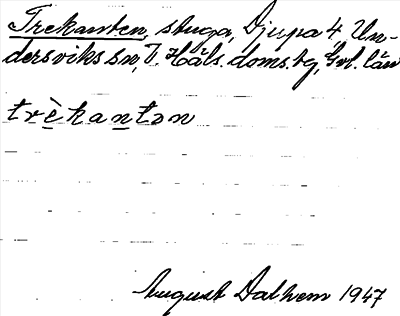 Trekanten, stuga, Djupa 4, Un-
dersviks sn, V. Häls. doms.tg, Gvl. län
trèkantən
August Dalhem 1947